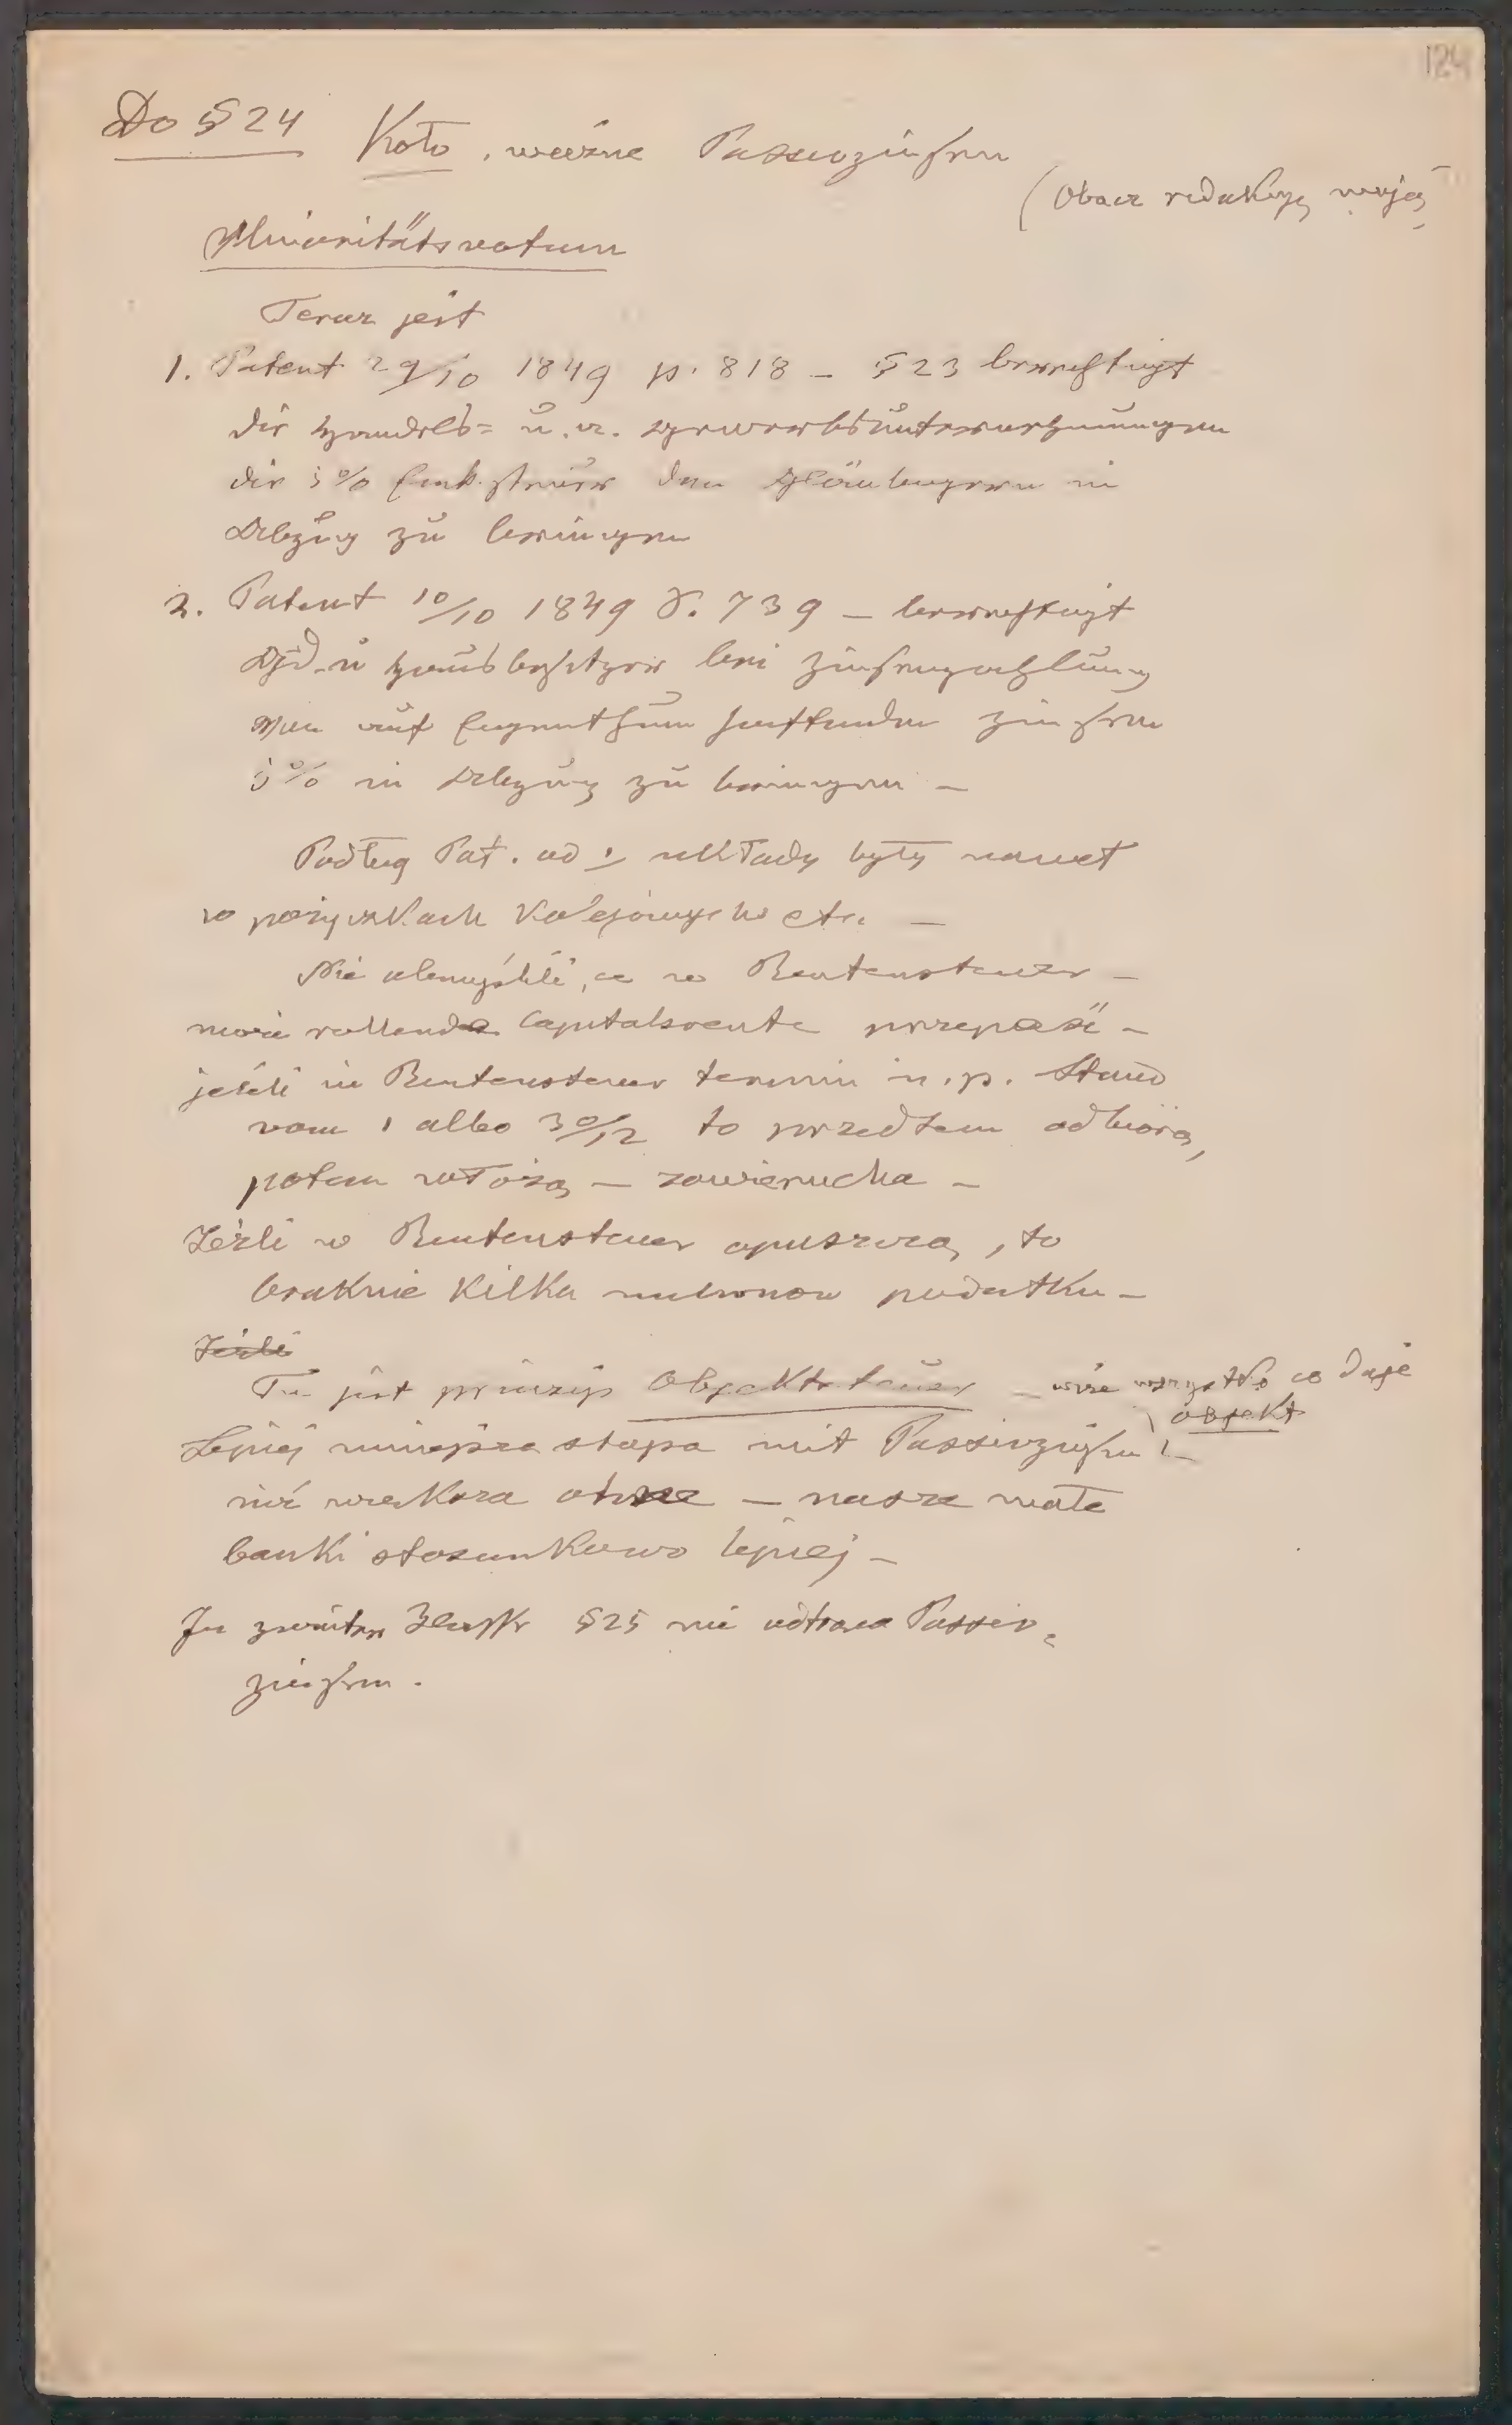 124
Do § 24 Koło, ważne Passivzinsen
(Obacz redakcyę moją)
Minoritätsvotum
Teraz jest
1. Patent 29/10 1849 p. 818 – § 23 berechtigt
die Handels= u. a. Gewerbsunternehmungen
die 5% Eink.steuer den Gläubigern in
Abzug zu bringen
2. Patent 10/10 1849 S. 739 – berechtigt
Gd. u Hausbesitzer bei Zinsenzahlung
von auf Eigenthum haftenden Zinsen
5% in Abzug zu bringen –
Podług Pat. ad 1 układy były nawet
w pożyczkach kolejowych etc. –
Nie obmyślili, co w Rentensteuer –
może rollende Capitalsrente przepaść –
jeżeli in Rentensteuer termin n.p. Stand
vom 1 albo 30/12 to przedtem odbiorą,
potem włożą – zawierucha –
Jeżli w Rentensteuer opuszczą, to
braknie kilka milionów podatku –
Jeżli
Tu jest prinzip Objektsteuer – więc wszystko co daje
objekt
Lepiej mniejsza stopa mit Passivzinsen! –
niż większa ohne – nasze małe
banki stosunkowo lepiej –
In zweiter Klasse § 25 nie odtrąca Passiv=
zinsen.